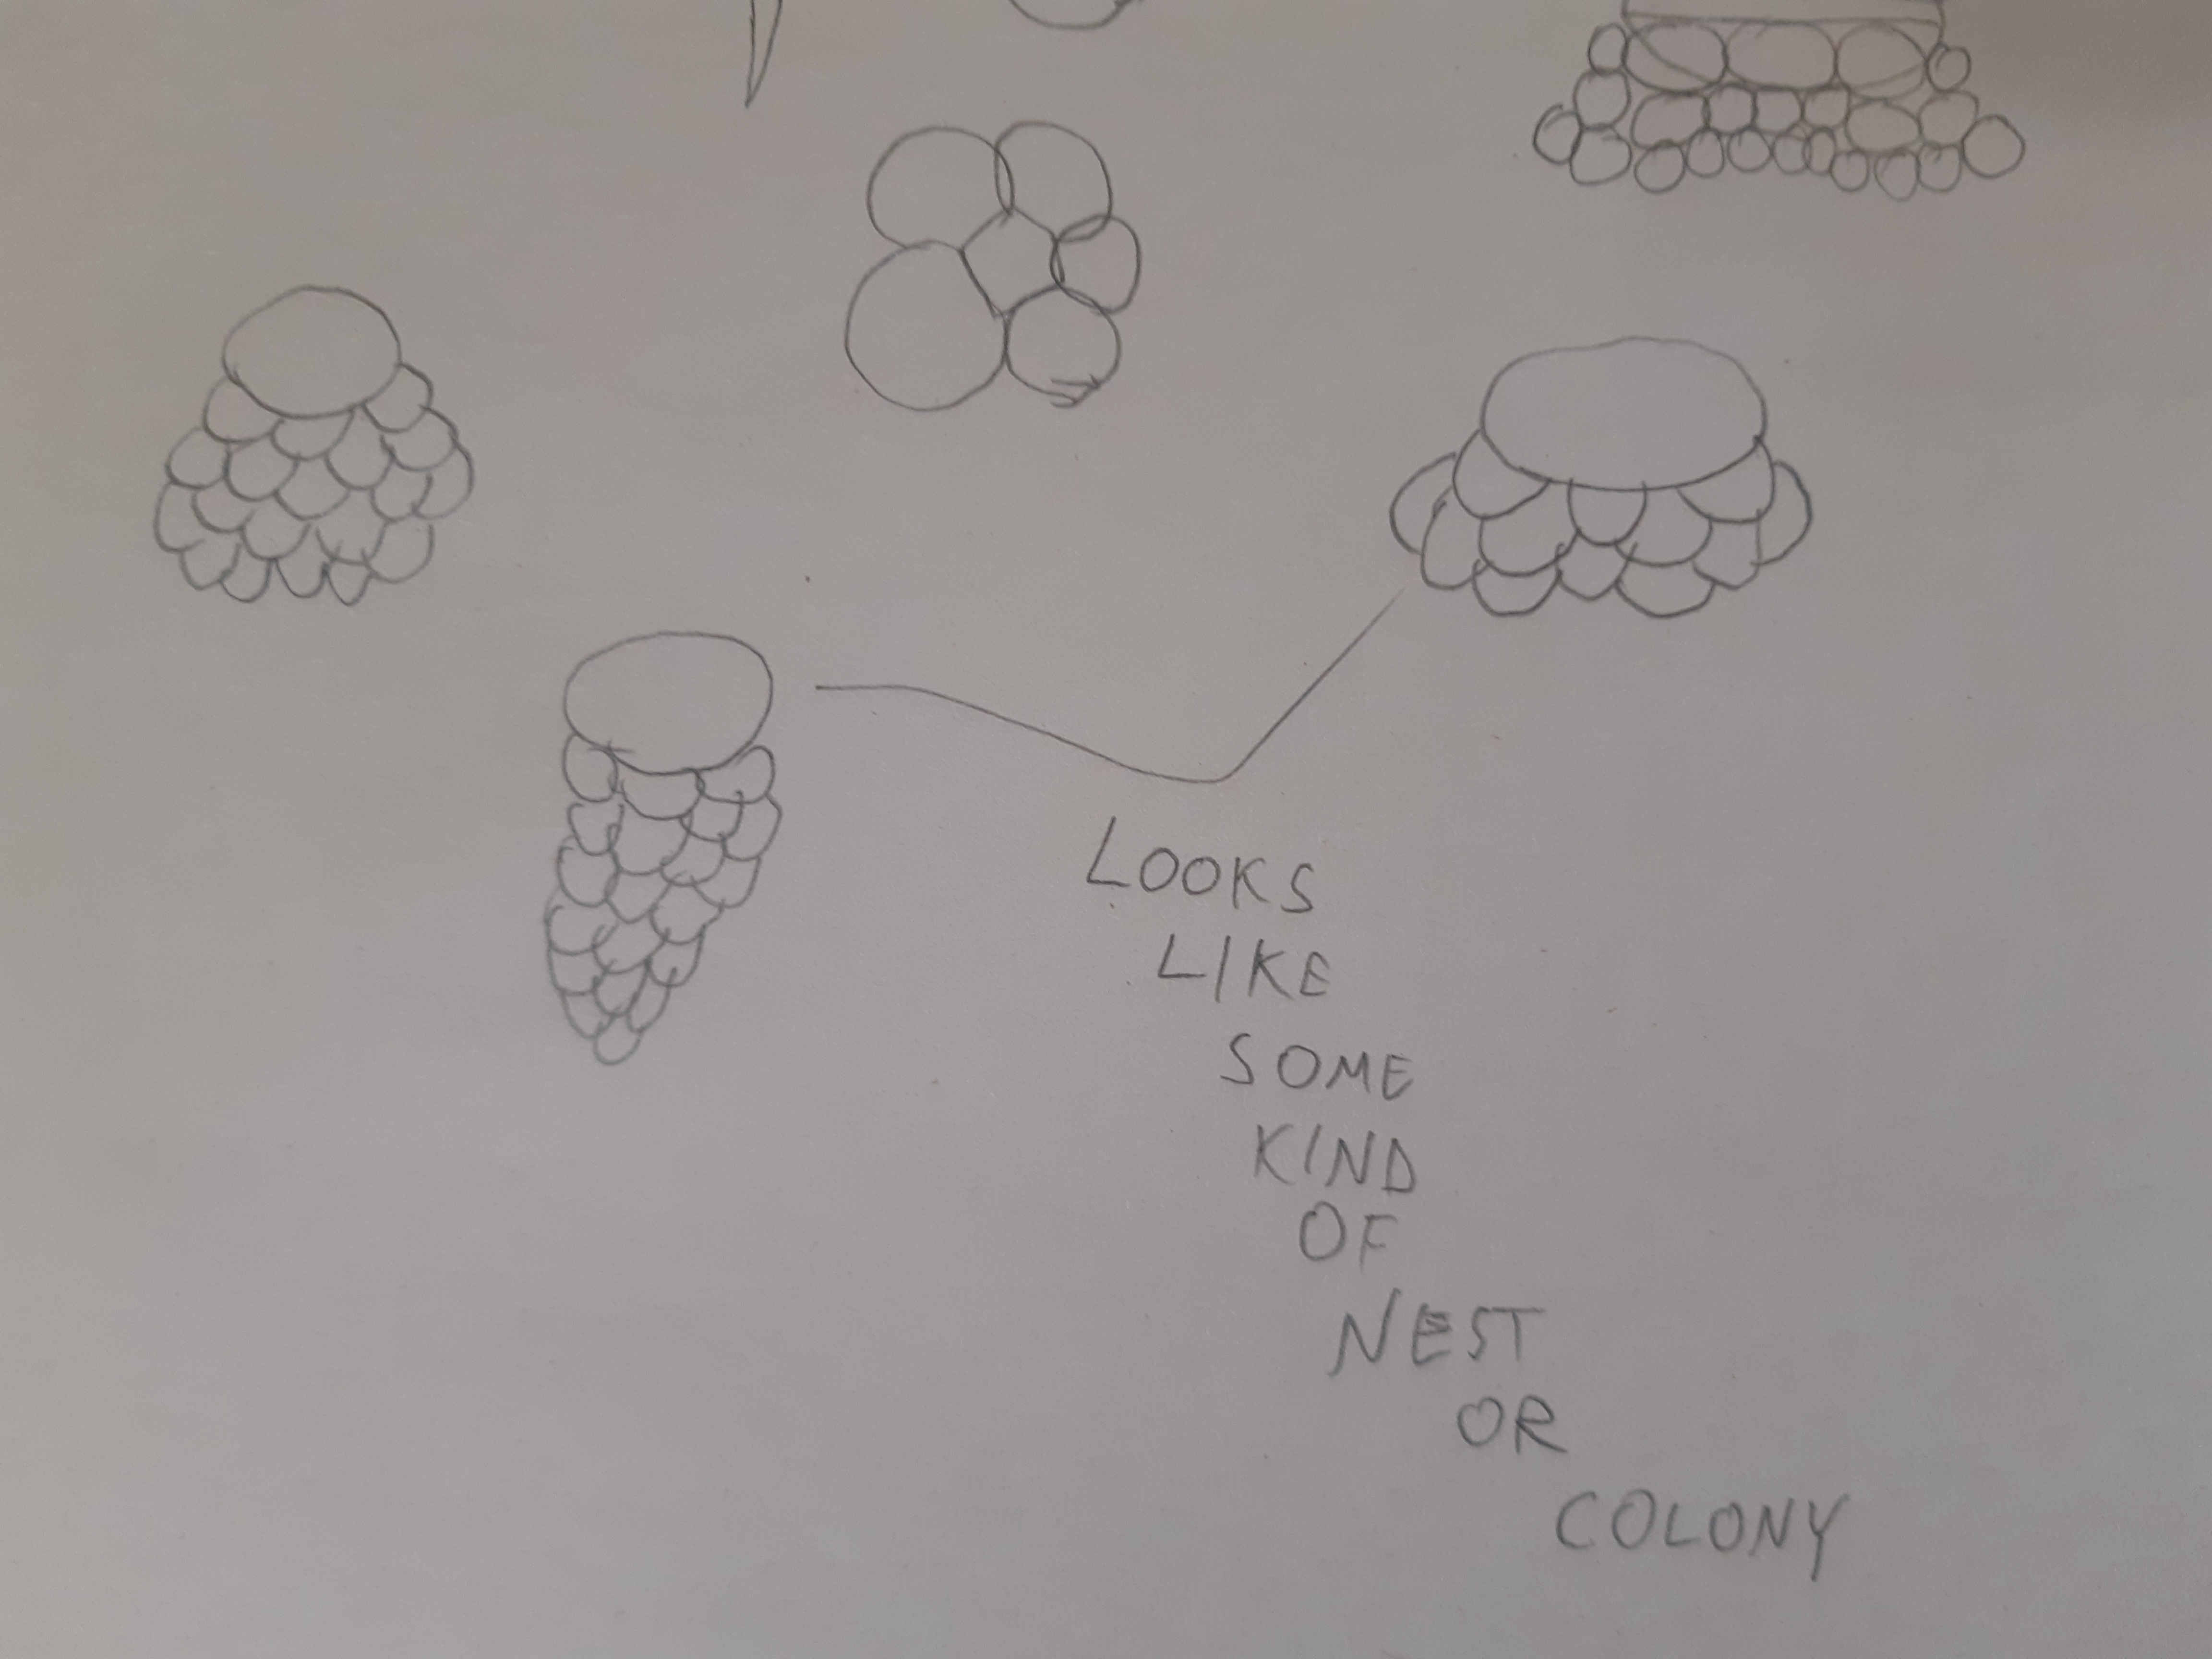 LOOKS
LIKE
SOME
KIND
OF
NEST
OR
COLONY